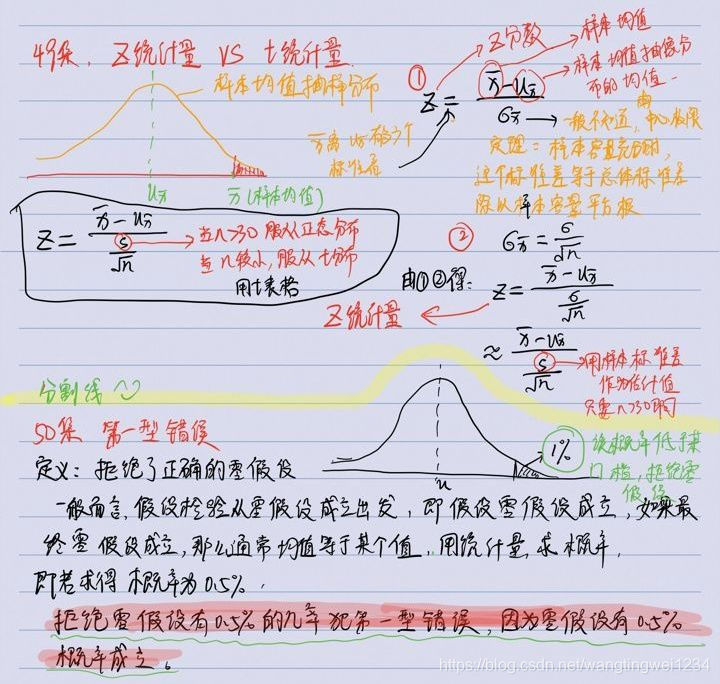 49集、Z统计量 VS t统计量
样本均值抽样分布
x̄离 ux̄ 的多少个
标准差
ux̄
x̄(样本均值)
①
Z分数
样本均值
样本均值抽样分
布的均值
Z = (x̄ - ux̄) / 6x̄
一般不知道，由中心极限
定理：样本容量充足时，
这个标准差等于总体标准差
除以样本容量平方根
Z = (x̄ - ux̄) / (s/√n)
当n>30 服从正态分布
当n较小，服从t分布
用t表格
② 6x̄ = 6/√n
由①②得：
Z = (x̄ - ux̄) / (6/√n)
Z统计量
≈ (x̄ - ux̄) / (s/√n)
用样本标准差
作为估计值
只要n>30即可
分割线
50集 第一型错误
u
1%
该概率低于某
门槛，拒绝零
假设
定义：拒绝了正确的零假设
一般而言，假设检验从零假设成立出发，即假设零假设成立，如果最
终零假设成立，那么通常均值等于某个值，用统计量，求概率，
即若求得概率为0.5%.
拒绝零假设有0.5%的几率犯第一型错误，因为零假设有0.5%
概率成立。
https://blog.csdn.net/wangtingwei1234